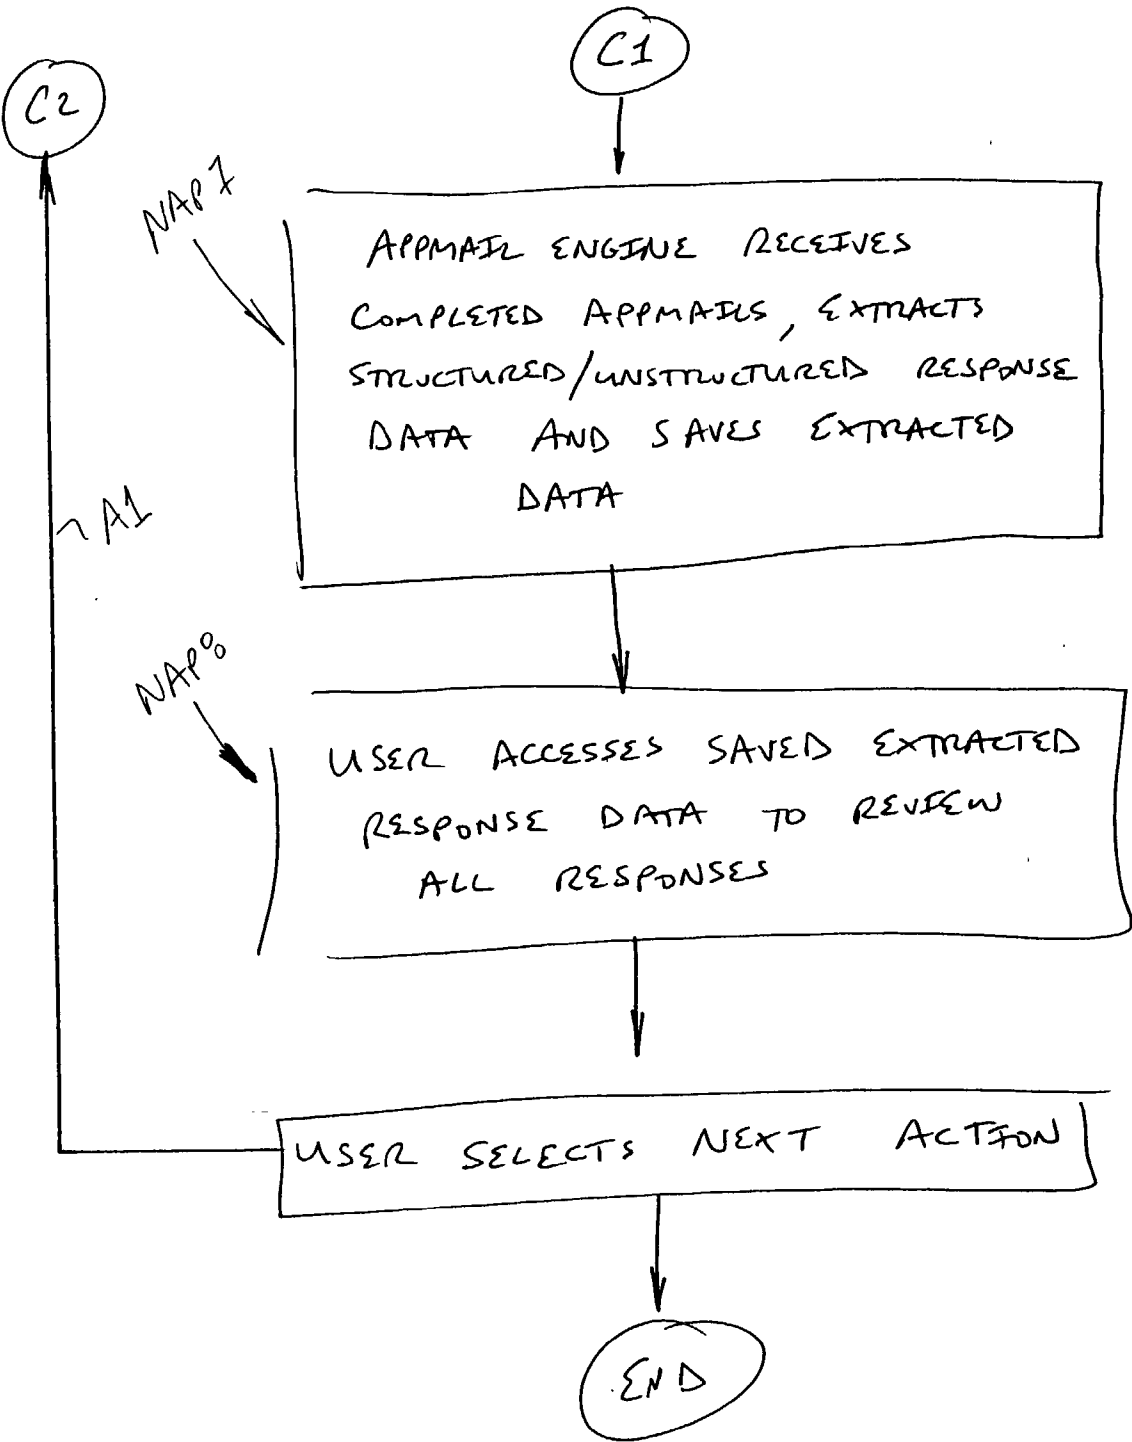 C1
C2
NAP7
APPMAIL ENGINE RECEIVES
COMPLETED APPMAILS, EXTRACTS
STRUCTURED/UNSTRUCTURED RESPONSE
DATA AND SAVES EXTRACTED
DATA
A1
NAP8
USER ACCESSES SAVED EXTRACTED
RESPONSE DATA TO REVIEW
ALL RESPONSES
USER SELECTS NEXT ACTION
END